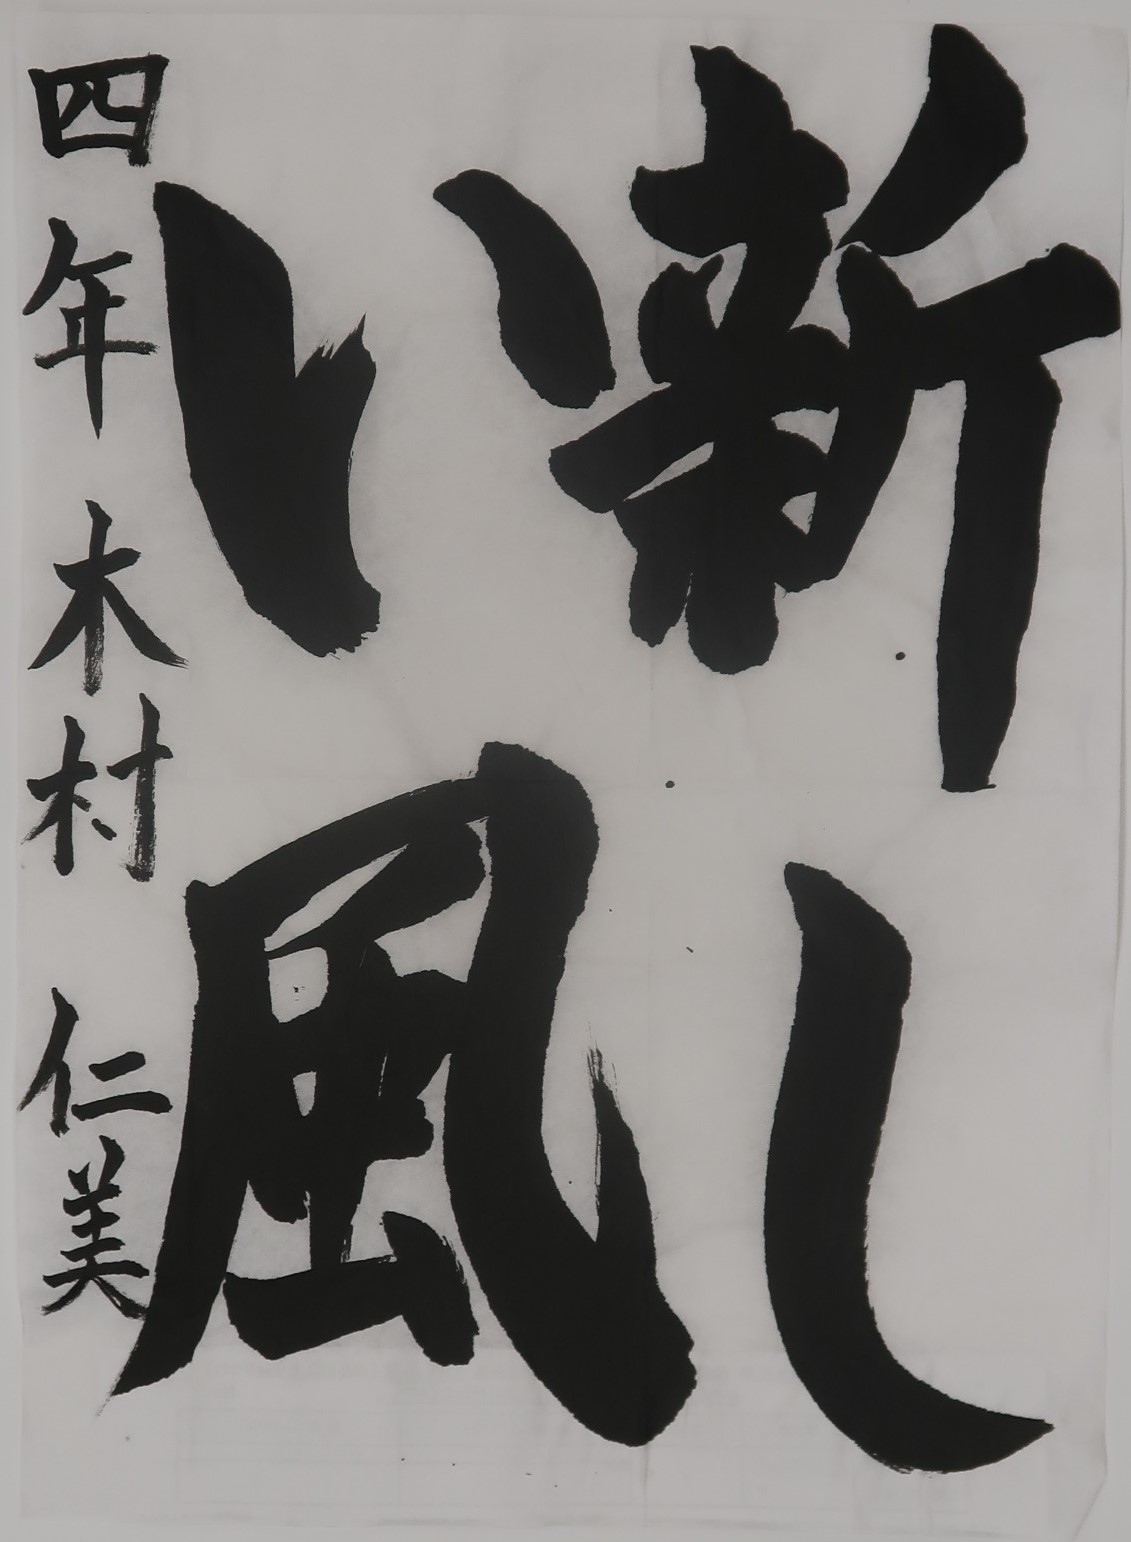 新し
い風
四年 木村 仁美